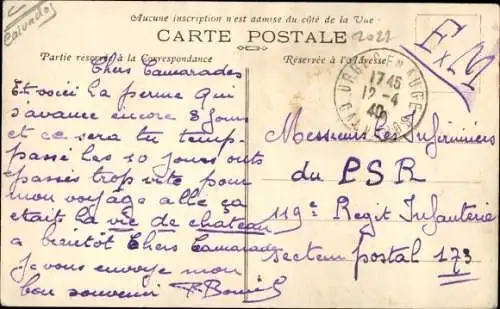 Calvados
Aucune inscription n'est admise du côté de la Vue
CARTE POSTALE
2022
Partie réservée à la Correspondance
Réservée à l'Adresse
F M
1745
12-4
40
Chers Camarades
Et voici la perme qui
s'avance encore 8 jours
et ce sera tu temp
passé les 10 jours onts
passés trop vite pour
mon voyage alle ça
etait la vie de chateau
a bientôt Chers Camarades
Je vous envoye mon
bon souvenir
Messieurs les Infirmiers
du PSR
119e Regit Infanterie
secteur postal 173